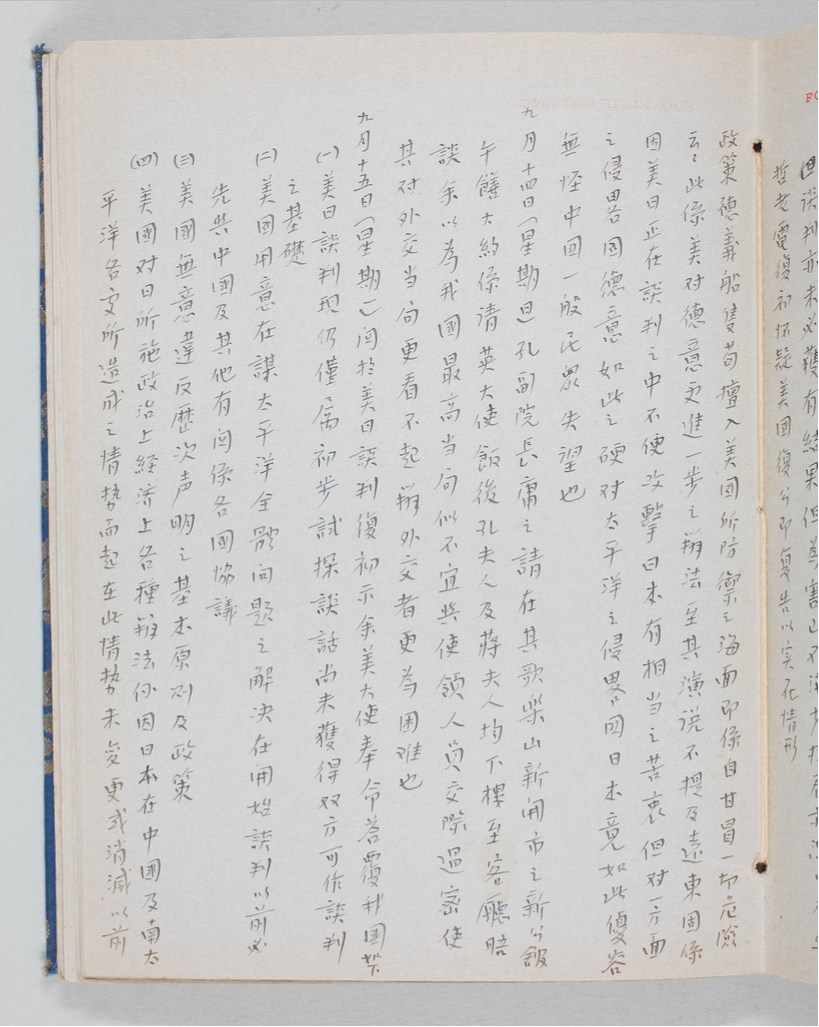 但談判亦未必獲有結果但
哲老電復初怀疑美国復公即复告以实在情形
政策德義船隻苟擅入美国所防禦之海面即係自甘冒一切危險
云云此係美对德意更進一步之辦法至其演说不提及遠東固係
因美日正在談判之中不便攻擊日本有相当之苦衷但对一方面
之侵畧国德意如此之硬对太平洋之侵畧囯日本竟如此優容
無怪中囯一般民眾失望也
九月十四日(星期日)孔副院長庸之請在其歌樂山新開市之新公館
午饍大約係请英大使飯後孔夫人及蔣夫人均下樓至客廳晤
談余以為我國最高当局似不宜與使領人員交際過密使
其对外交当局更看不起辦外交者更為困难也
九月十五日(星期一)関於美日談判復初示余美大使奉令荅覆我国如下
(一)美日談判現仍僅屬初步試探談話尚未獲得双方可作談判
之基礎
(二)美国用意在謀太平洋全部问题之解决在開始談判以前必
先與中國及其他有関係各國協議
(三)美國無意違反歷次声明之基本原则及政策
(四)美國对日所施政治上經济上各種辦法係因日本在中國及南太
平洋各处所造成之情势而起在此情势未变更或消滅以前